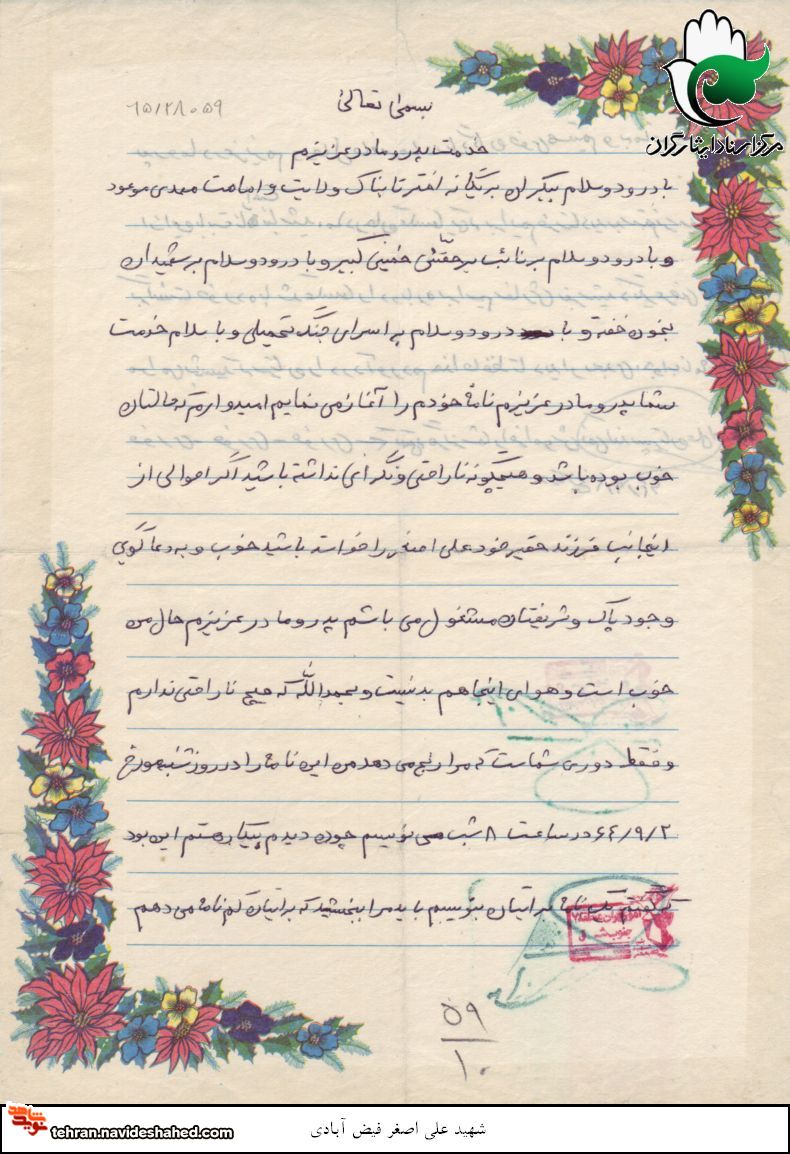 مرکز اسناد ایثارگران
بسمه تعالی
۶۵۱۲۸۰۵۹
خدمت پدر و مادر عزیزم
با درود و سلام بیکران به یگانه اختر تابناک ولایت و امامت مهدی موعود
و با درود و سلام بر نائب برحقش خمینی کبیر و با درود و سلام بر شهیدان
بخون خفته و با درود و سلام به اسرای جنگ تحمیلی و با سلام خدمت
شما پدر و مادر عزیزم نامۀ خودم را آغاز می نمایم امیدوارم که حالتان
خوب بوده باشد و هیچگونه ناراحتی و نگرانی نداشته باشید اگر احوالی از
اینجانب فرزند حقیر خود علی اصغر را خواسته باشید خوب و به دعاگویی
وجود پاک و شریفتان مشغول می باشم پدر و مادر عزیزم حال من
خوب است و هوای اینجا هم بد نیست و بحمدالله که هیچ ناراحتی ندارم
و فقط دوری شماست که مرا رنج می دهد من این نامه را در روز شنبه مورخ
۶۴/۹/۲ در ساعت ۸ شب می نویسم چون دیدم بیکار هستم این بود
که گفتم یک نامۀ برایتان بنویسم باید مرا ببخشید که برایتان کم نامه می دهم
۵۹
۱۰
شهید علی اصغر فیض آبادی
نوید شاهد
tehran.navideshahed.com